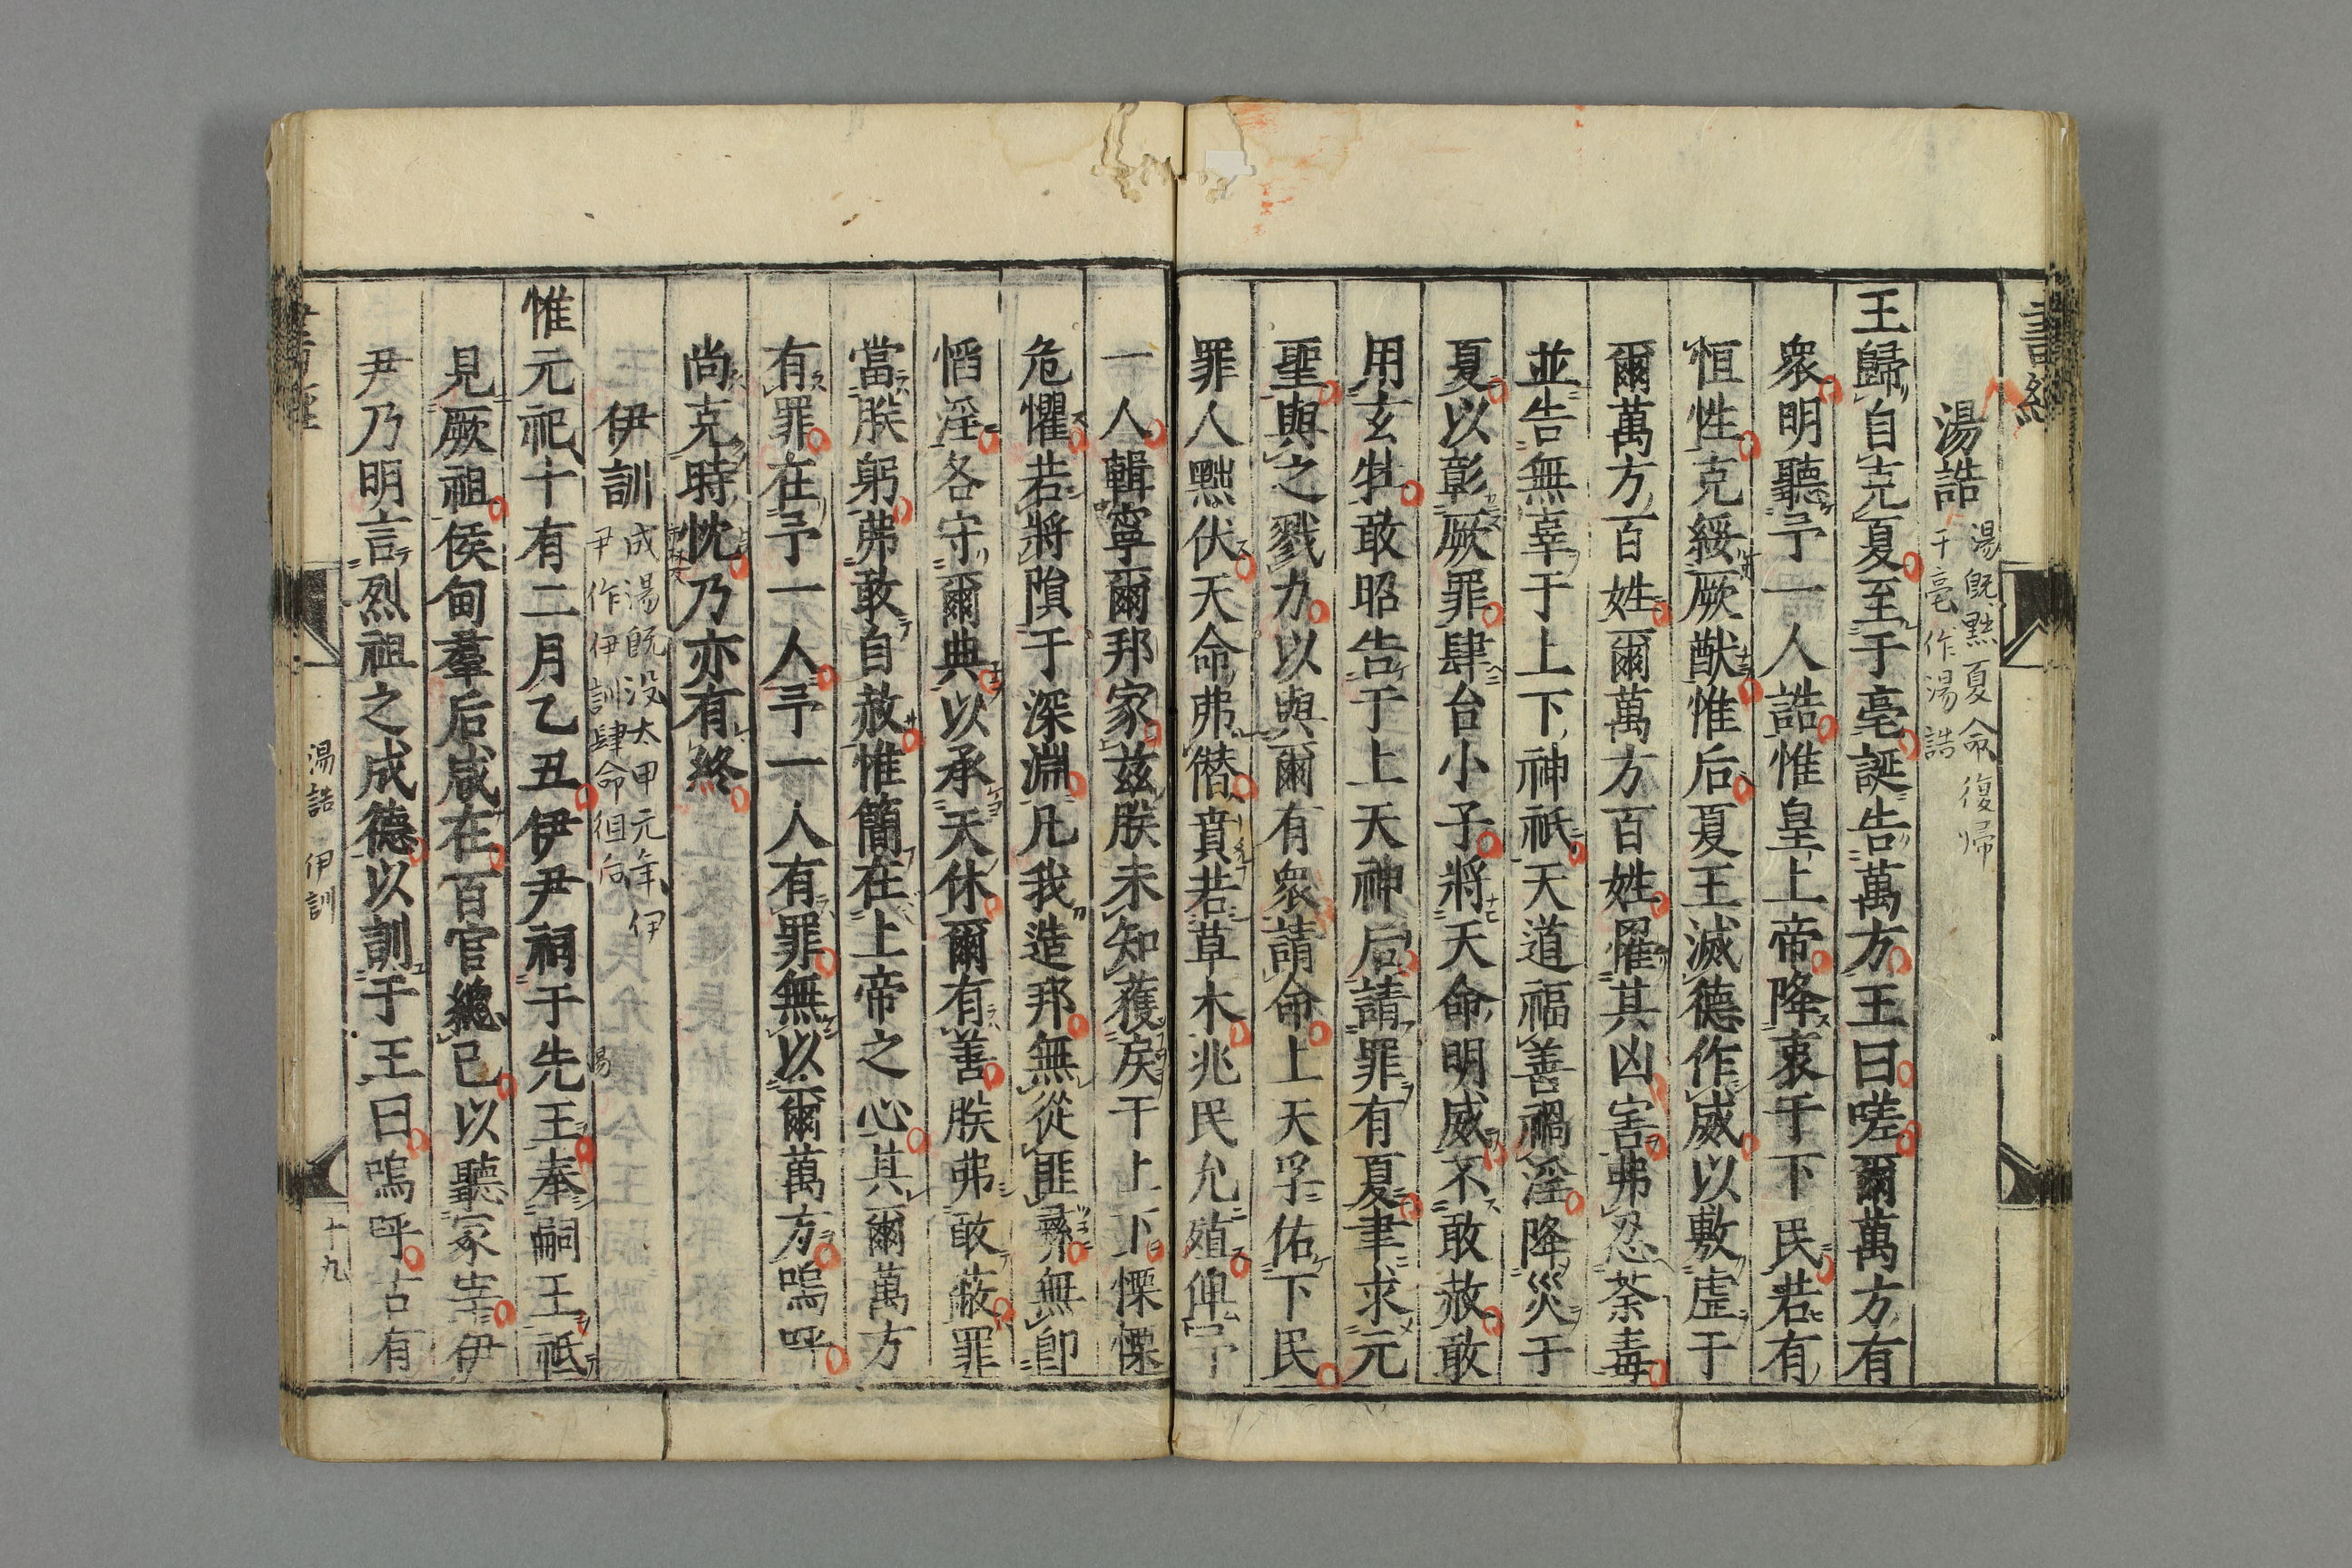 書經
湯誥
湯既黜夏命復帰
于亳作湯誥
王歸自克夏至于亳誕告萬方王曰嗟爾萬方有
衆明聽予一人誥惟皇上帝降衷于下民若有
恒性克綏厥猷惟后夏王滅德作威以敷虐于
爾萬方百姓爾萬方百姓罹其凶害弗忍荼毒
並告無辜于上下神祇天道福善禍淫降災于
夏以彰厥罪肆台小子將天命明威不敢赦敢
用玄牡敢昭告于上天神后請罪有夏聿求元
聖與之戮力以與爾有衆請命上天孚佑下民
罪人黜伏天命弗僣賁若草木兆民允殖俾予
一人輯寧爾邦家茲朕未知獲戾于上下慄慄
危懼若將隕于深淵凡我造邦無從匪彝無卽
慆淫各守爾典以承天休爾有善朕弗敢蔽罪
當朕躬弗敢自赦惟簡在上帝之心其爾萬方
有罪在予一人予一人有罪無以爾萬方嗚呼
尚克時忱乃亦有終
伊訓
成湯既没太甲元年伊
尹作伊訓肆命徂后
惟元祀十有二月乙丑伊尹祠于先王奉嗣王祗
湯
見厥祖侯甸羣后咸在百官緫己以聽冢宰伊
尹乃明言烈祖之成德以訓于王曰嗚呼古有
書經
湯誥 伊訓
十九